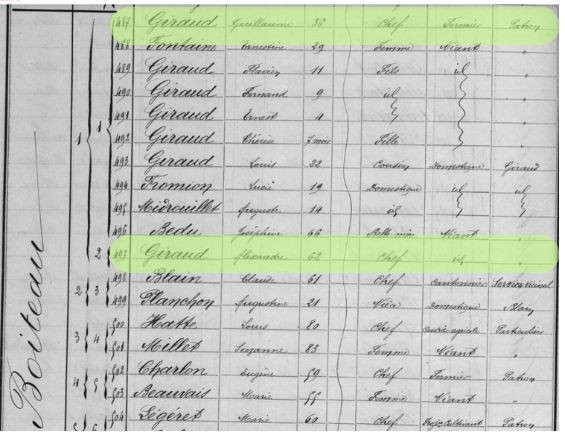 487 Giraud Guillaume 36 Chef Fermier Patron
488 Fontaine Ernestine 29 Femme Néant "
489 Giraud Flavien 11 Fils id "
490 Giraud Fernand 9 id "
491 Giraud Ernest 4 "
1 1 492 Giraud Thérèse 7 mois Fille "
493 Giraud Louis 22 Cousin Domestique Giraud
494 Fromion Lucie 19 Domestique id id
495 Auguste 14 id
496 Bedu Joséphine 66 Belle mère Néant "
2 497 Giraud Alexandre 62 Chef id "
2 3 498 Blain Claude 61 Chef Cantonnier Service vicinal
499 Planchon Augustine 21 Nièce Domestique Blain
3 4 500 Hatte Louis 80 Chef Ouvrier agricole Particuliers
501 Millet Suzanne 83 Femme Néant "
4 5 502 Charlon Eugène 59 Chef Fermier Patron
503 Beauvais Marie 55 Femme Néant "
504 Légeret Marie 60 Chef Cultivant Patron
Boiteau